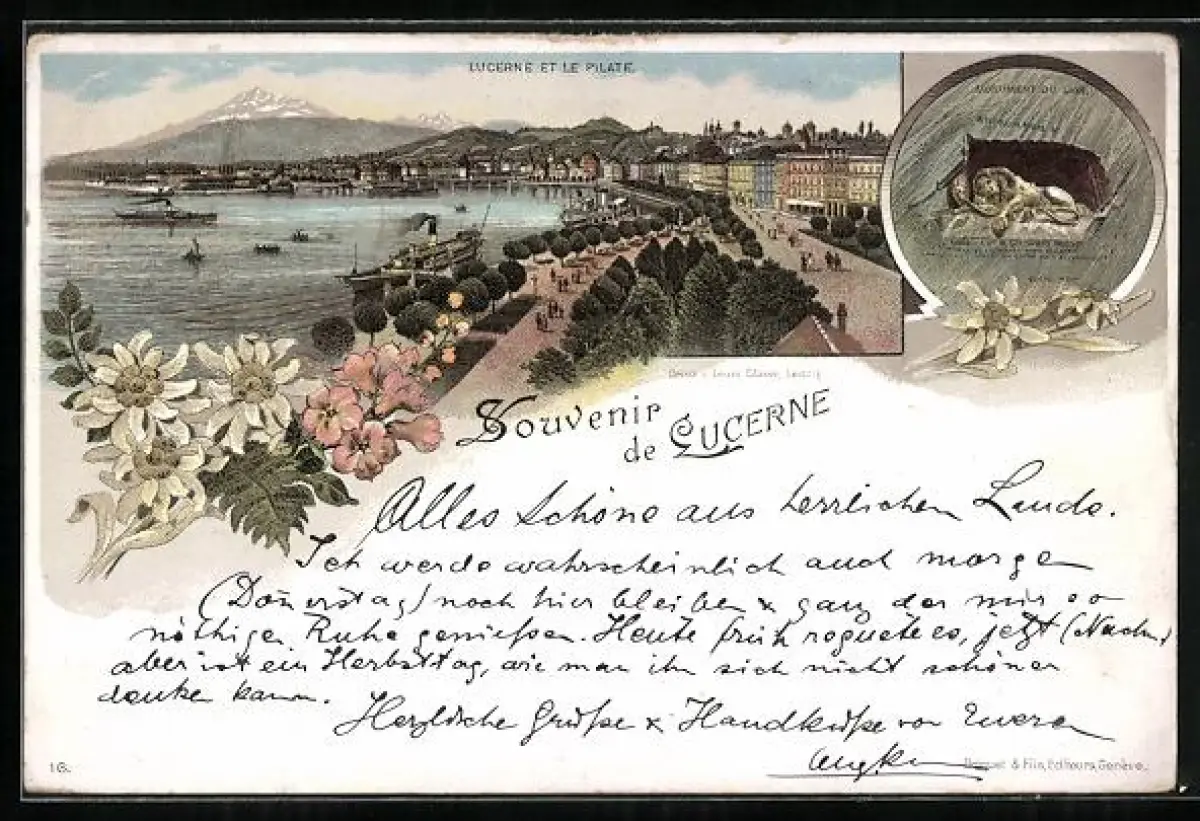 LUCERNE ET LE PILATE.
MONUMENT DU LION.
Souvenir
de LUCERNE
Alles Schöne aus herrlichem Lande.
Ich werde wahrscheinlich auch morgen
(Donnerstag) noch hier bleiben & ganz der mir so
nöthigen Ruhe genießen. Heute früh regnete es, jetzt (Nachm)
aber ist ein Herbsttag, wie man ihn sich nicht schöner
denken kann.
Herzliche Grüße & Handküße von Eurem
16.
& Fils, Editeurs, Genève.